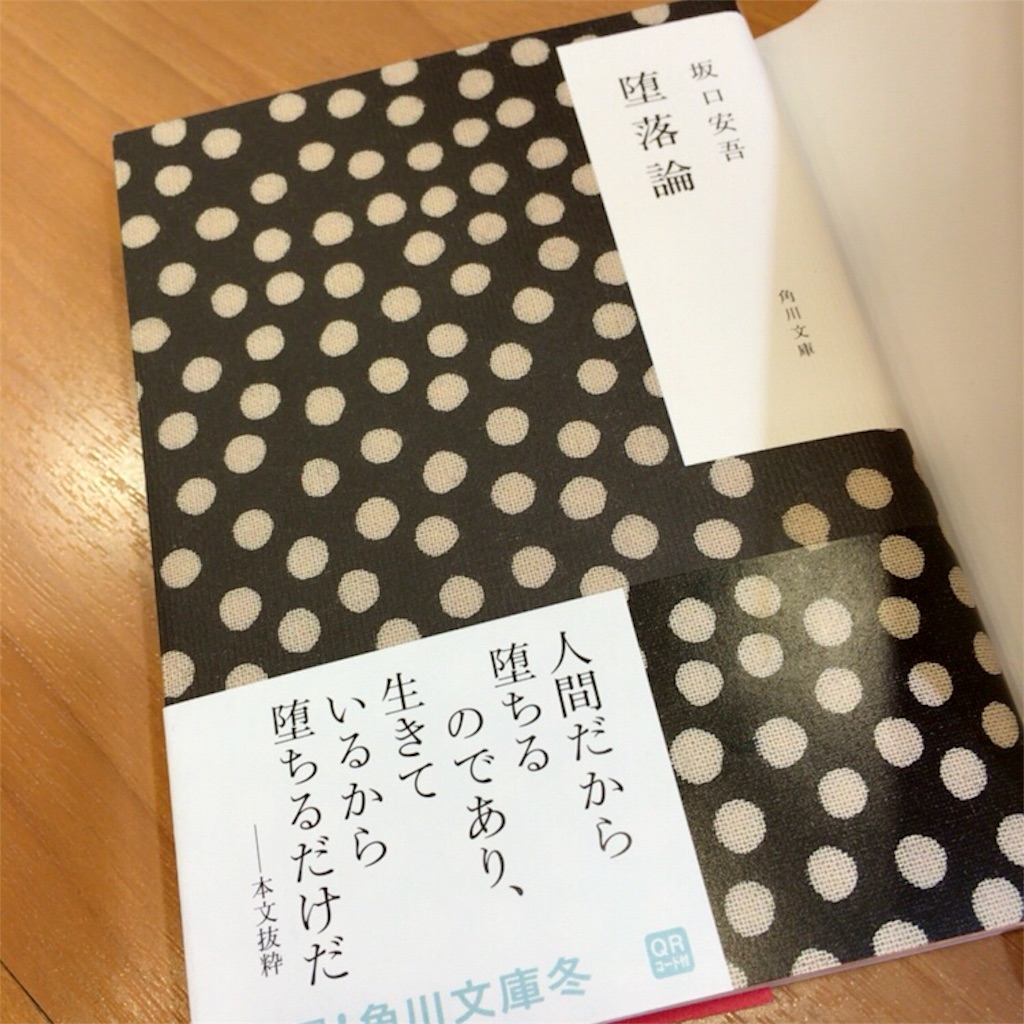 坂口安吾
堕落論
角川文庫
人間だから
堕ちる
のであり、
生きて
いるから
堕ちるだけだ
──本文抜粋
QR
コード付
!角川文庫冬